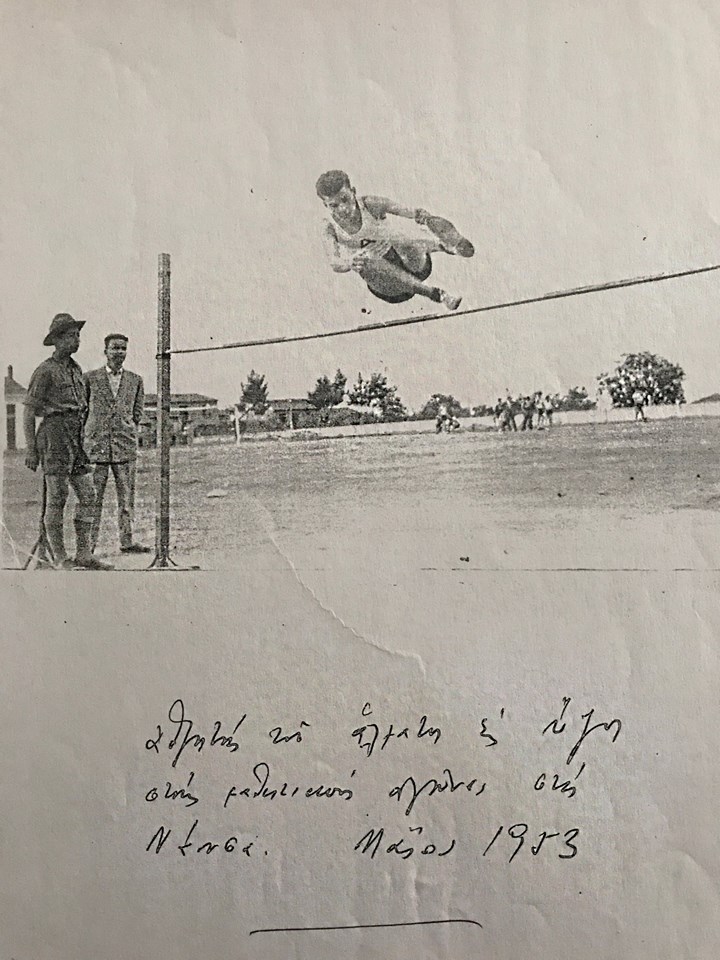 ἀθλητής τοῦ ἅλματος εἰς ὕψος
στούς μαθητικούς ἀγῶνες στή
Νάουσα. Μάϊος 1953